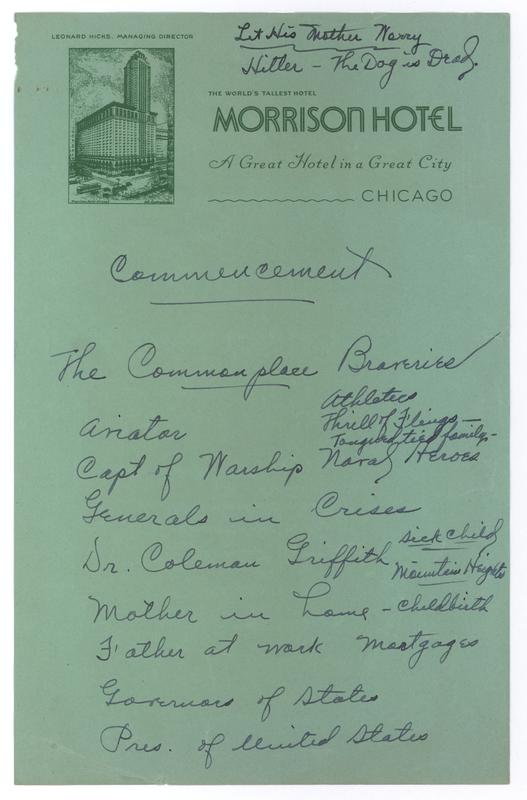 LEONARD HICKS, MANAGING DIRECTOR
Let His Mother Worry
Hitler – The Dog is Dead.
THE WORLD'S TALLEST HOTEL
MORRISON HOTEL
A Great Hotel in a Great City
CHICAGO
Commencement
The Commonplace Braveries
Athletes
Thrill of Flings –
Tongue tied family –
Aviator
Capt of Warship Naval Heroes
Generals in Crises
Dr. Coleman Griffith sick child
Mountain Heights
Mother in home – childbirth
Father at work Mortgages
Governors of States
Pres. of United States